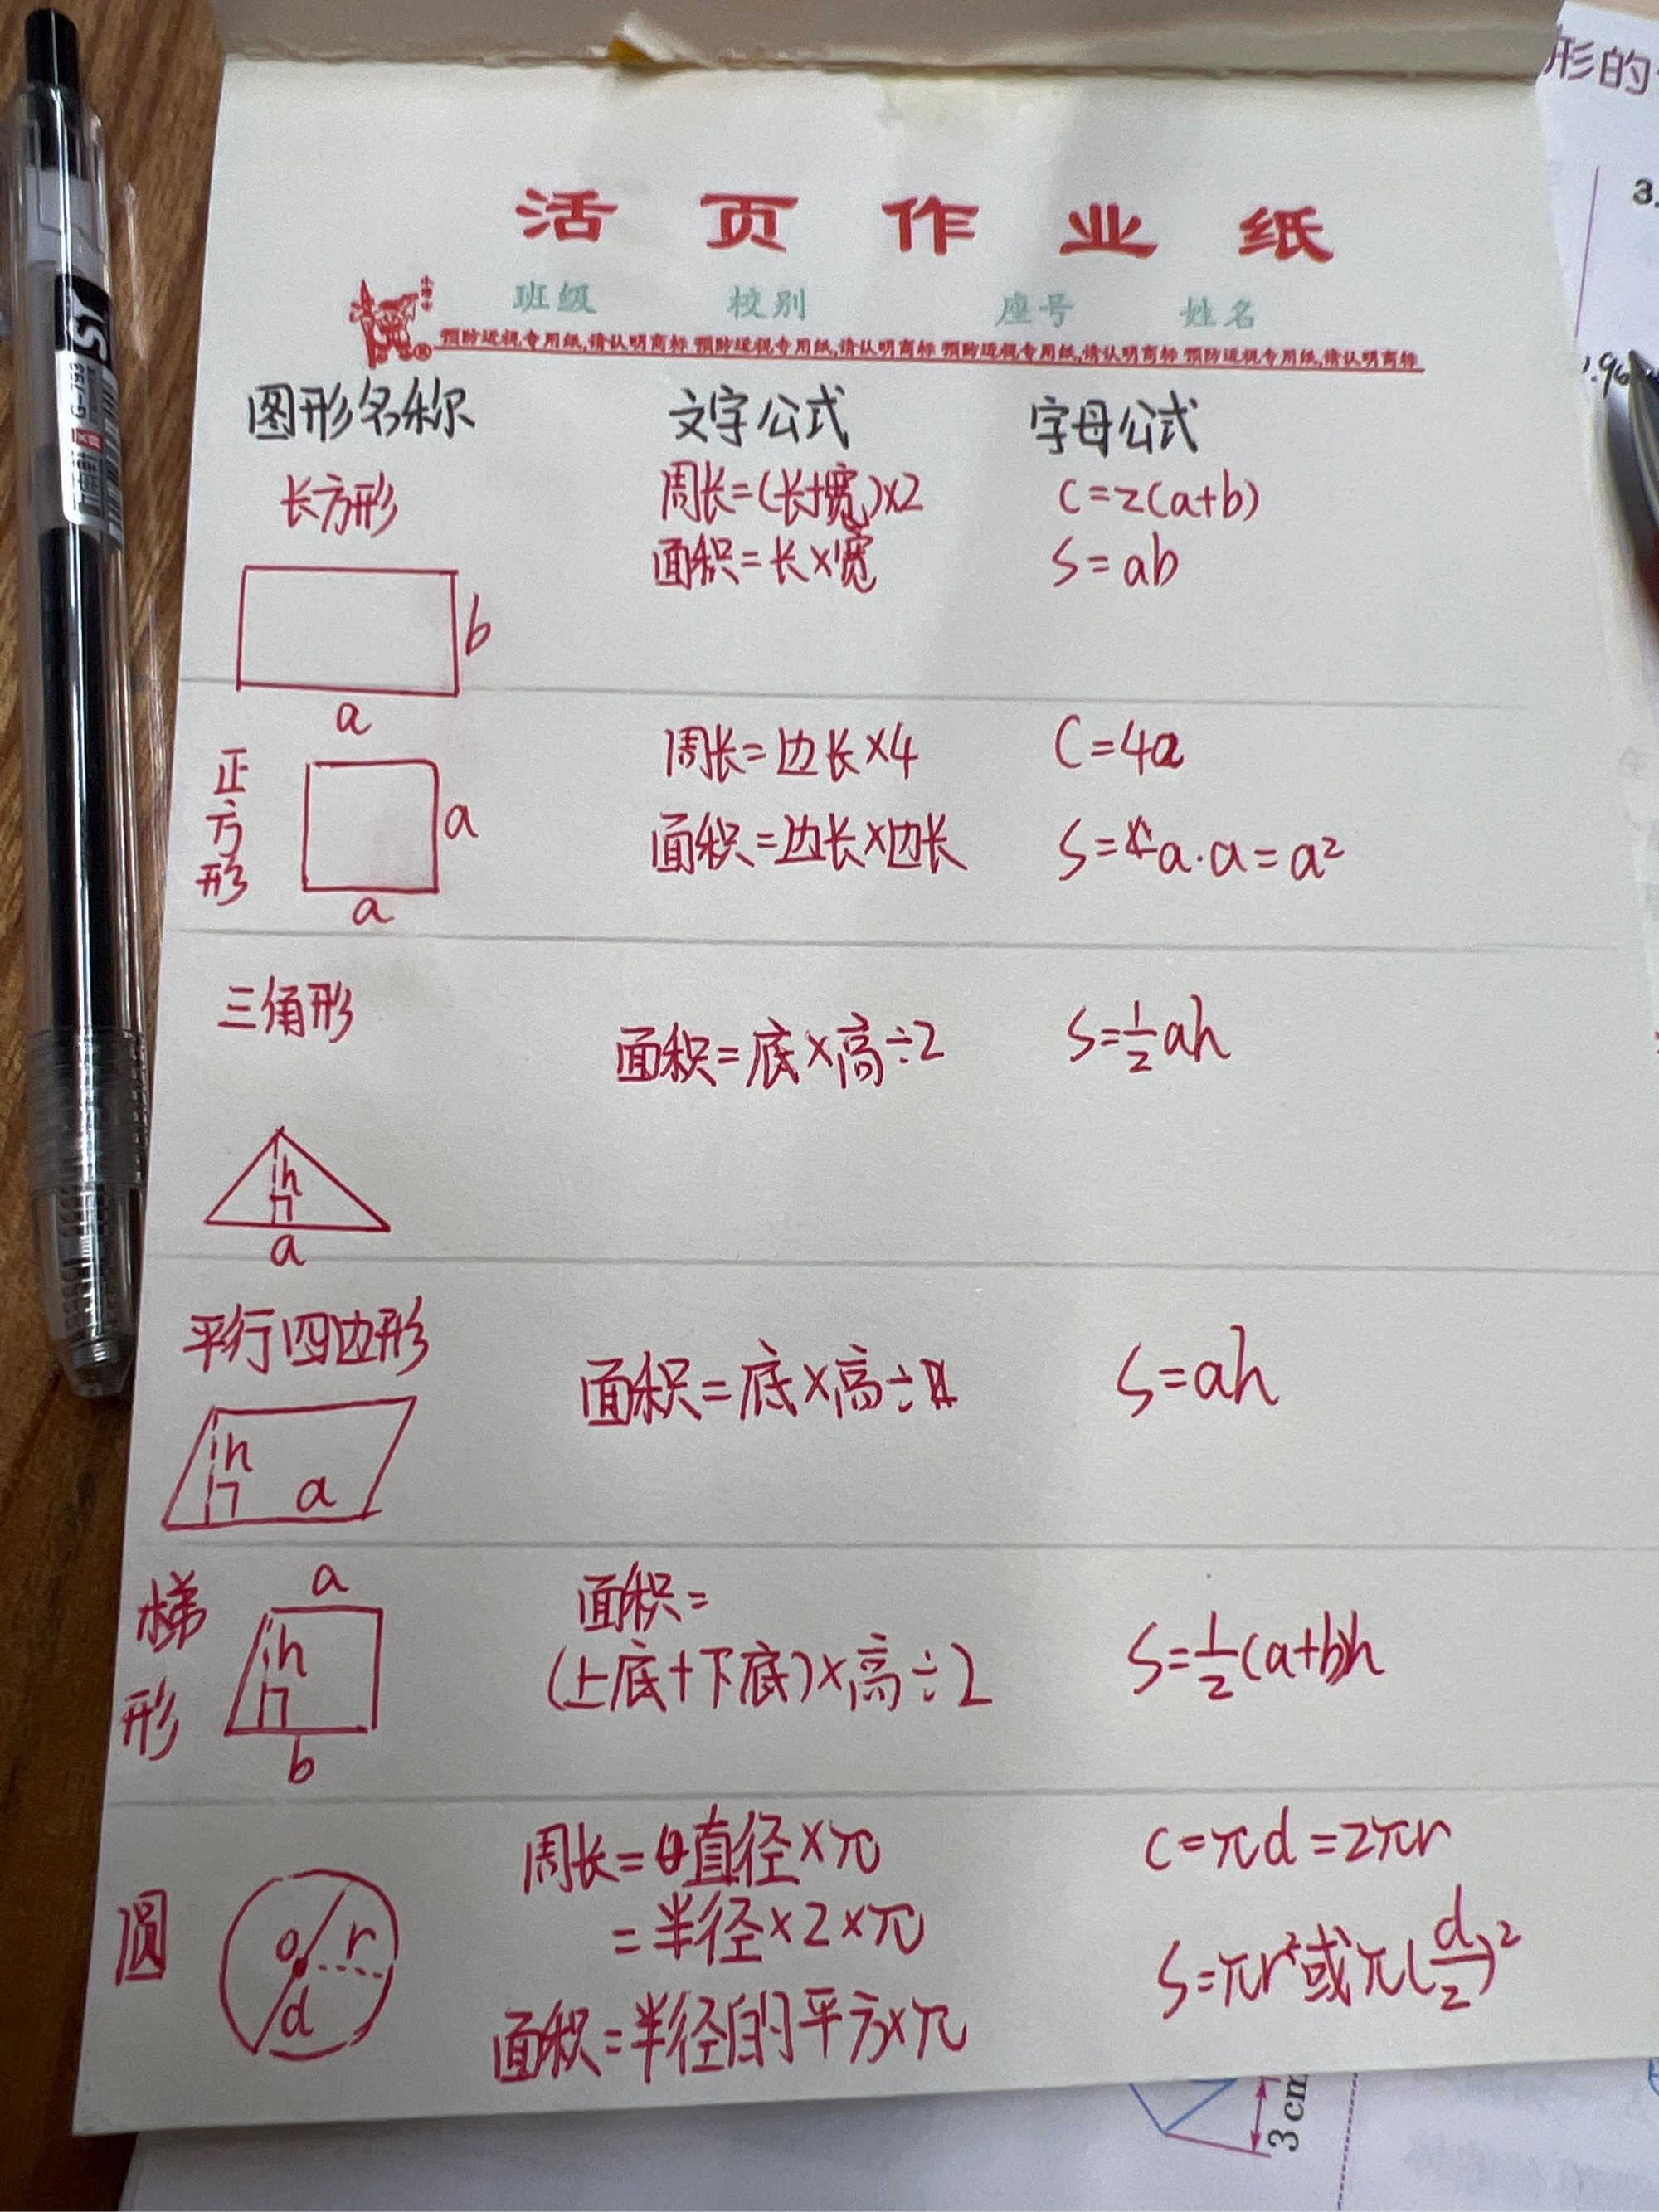 形的
3.
活页作业纸
班级 校别 座号 姓名
预防近视专用纸,请认明商标 预防近视专用纸,请认明商标 预防近视专用纸,请认明商标 预防近视专用纸,请认明商标
G-793
图形名称 文字公式 字母公式
长方形 周长=(长+宽)×2 C=2(a+b)
面积=长×宽 S=ab
b
a
正方形 周长=边长×4 C=4a
a
面积=边长×边长 S=a·a=a²
a
三角形 面积=底×高÷2 S=½ah
h
a
平行四边形 面积=底×高÷ S=ah
h
a
梯形 a 面积=
h (上底+下底)×高÷2 S=½(a+b)h
b
圆 周长=直径×π C=πd=2πr
=半径×2×π
o r
d
S=πr²或π(d/2)²
面积=半径的平方×π
3 cm